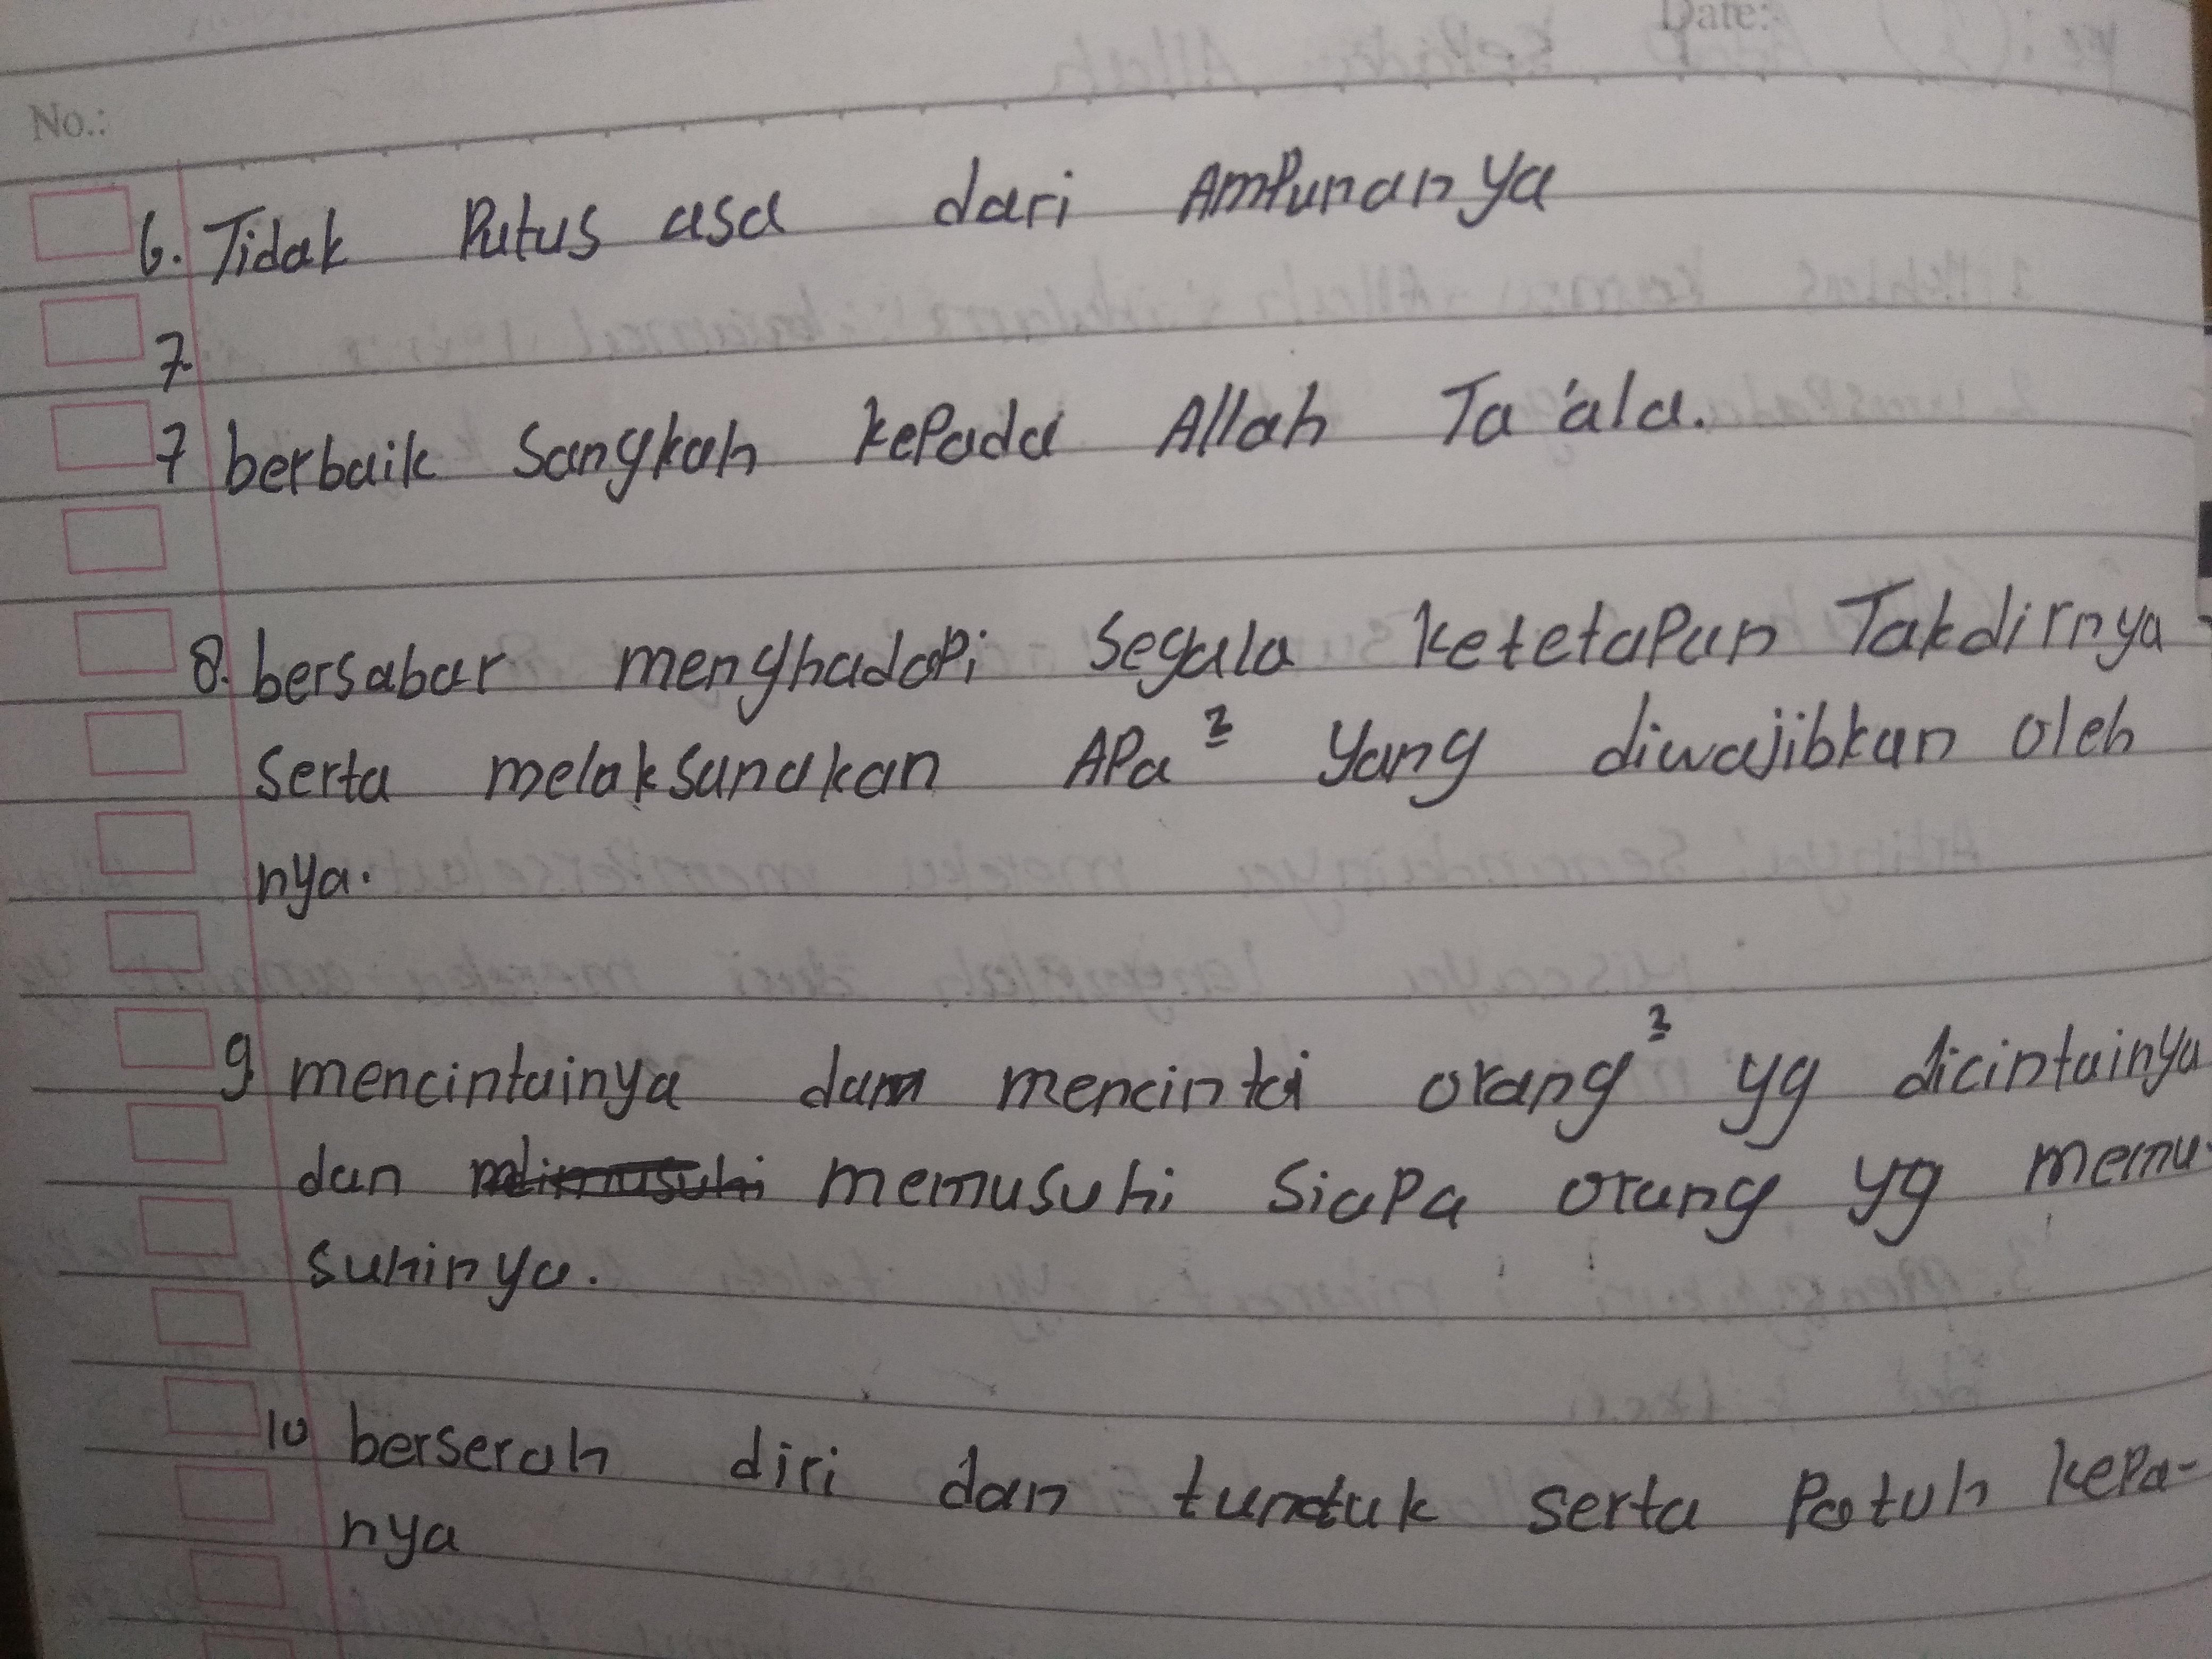 Date:
No.:
6. Tidak Putus asa dari AmPunanya
7
7 berbaik Sangkah kePada Allah Ta'ala.
8. bersabar menghadaPi Segala KetetaPan Takdirnya
Serta melaksanakan APa² Yang diwajibkan oleh
nya.
9 mencintainya dam mencintai orang² yg dicintainya
dan memusuhi SiaPa orang yg memu-
suhinya.
10 berserah diri dan tundtuk serta Patuh kePa-
nya